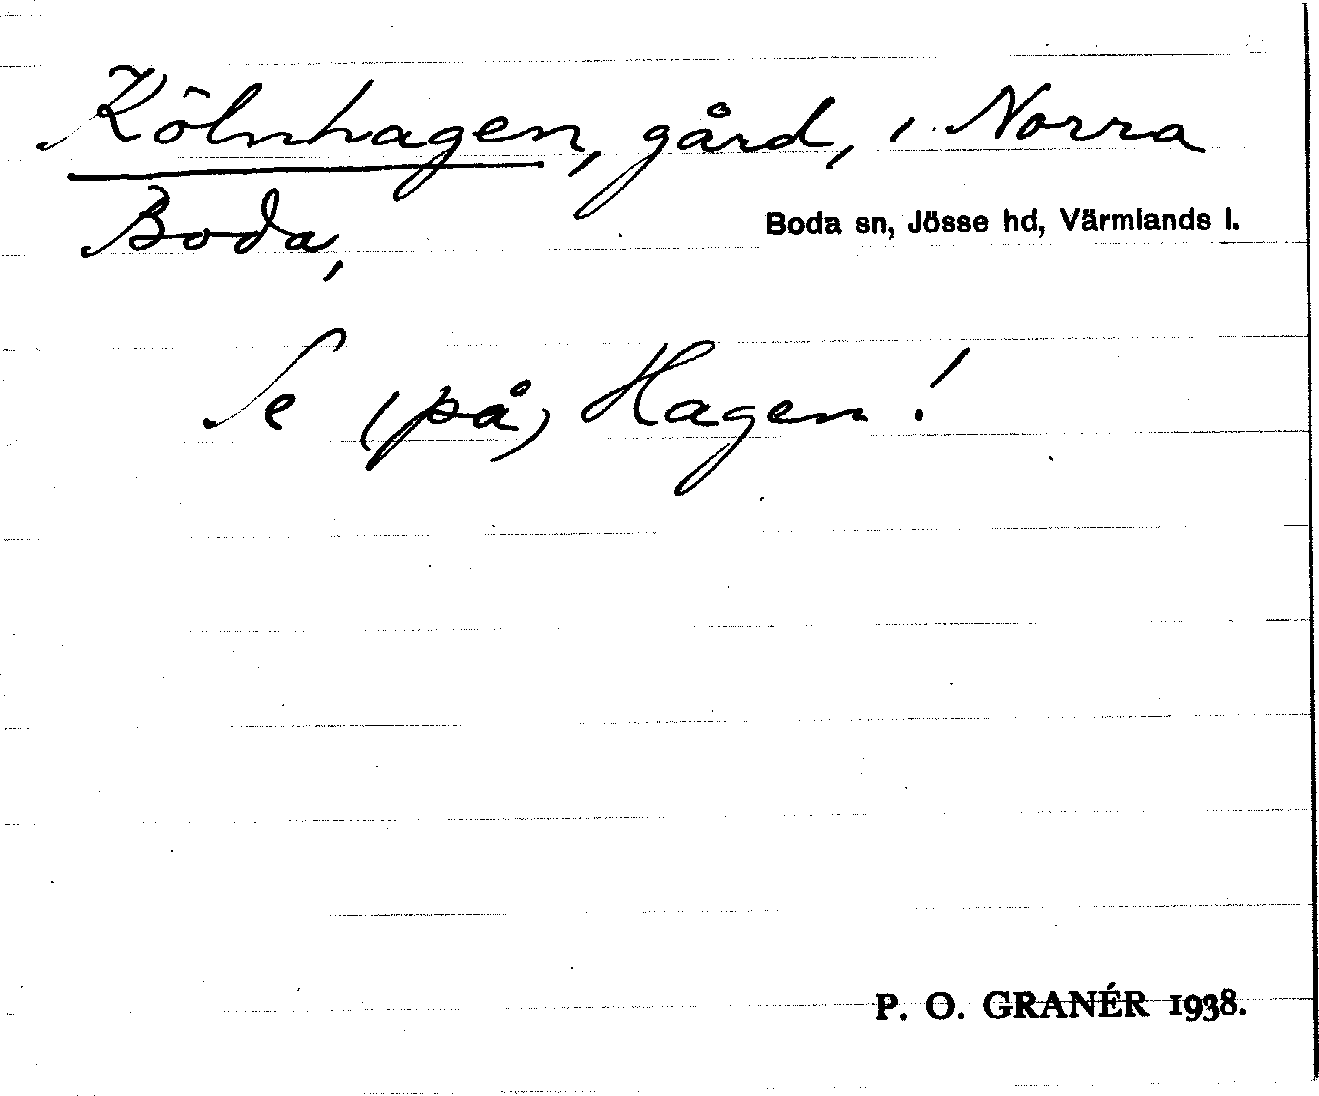 Kölnhagen, gård, i Norra
Boda,
Boda sn, Jösse hd, Värmlands l.
Se (på) Hagen!
P. O. GRANÉR 1938.